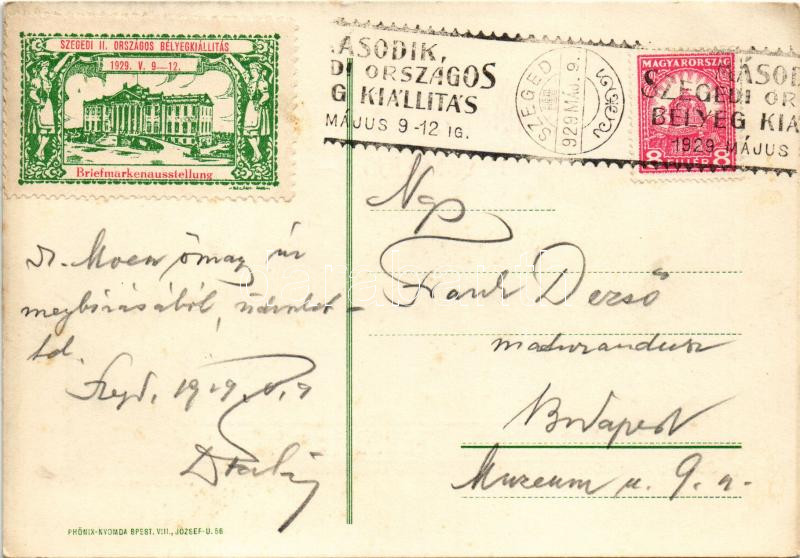 SZEGEDI II. ORSZÁGOS BÉLYEGKIÁLLITÁS
1929. V. 9–12.
Briefmarkenausstellung
ÁSODIK,
DI ORSZÁGOS
G KIÁLLITÁS
MÁJUS 9-12 IG.
SZEGED
1929 MÁJ. 9.
MAGYARORSZÁG
8 FILLÉR 8
MÁSOD
SZEGEDI OR
BÉLYEG KIÁ
1929 MÁJUS
Dr. úr
megbizásából, üdvözlet
Szeged, 1929. V. 9
Frank Dezső
maturandusz
Budapest
Muzeum u. 9.
PHÖNIX-NYOMDA BPEST. VIII., JÓZSEF-U. 56
darabanth